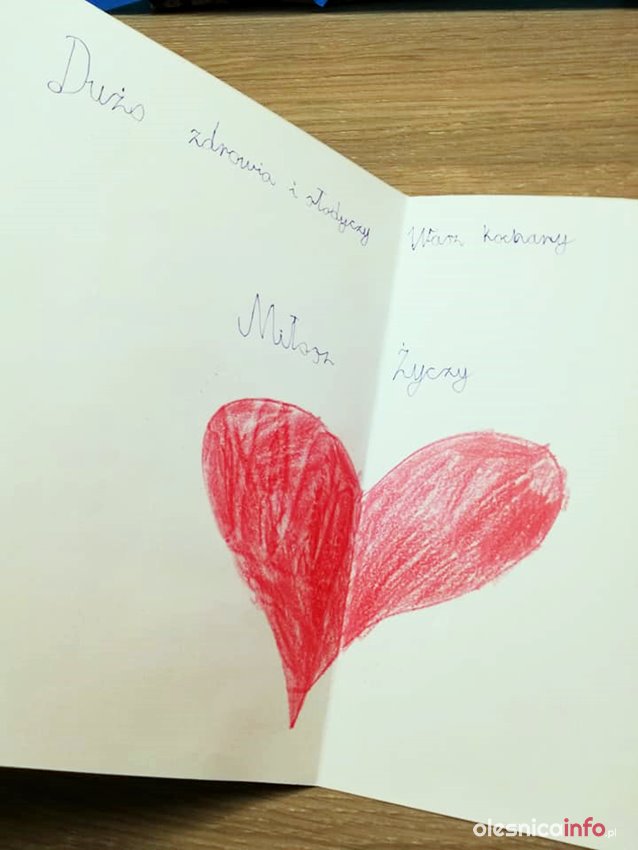 Dużo zdrowia i słodyczy Wam kochany
Miłosz Życzy
olesnicainfo.pl